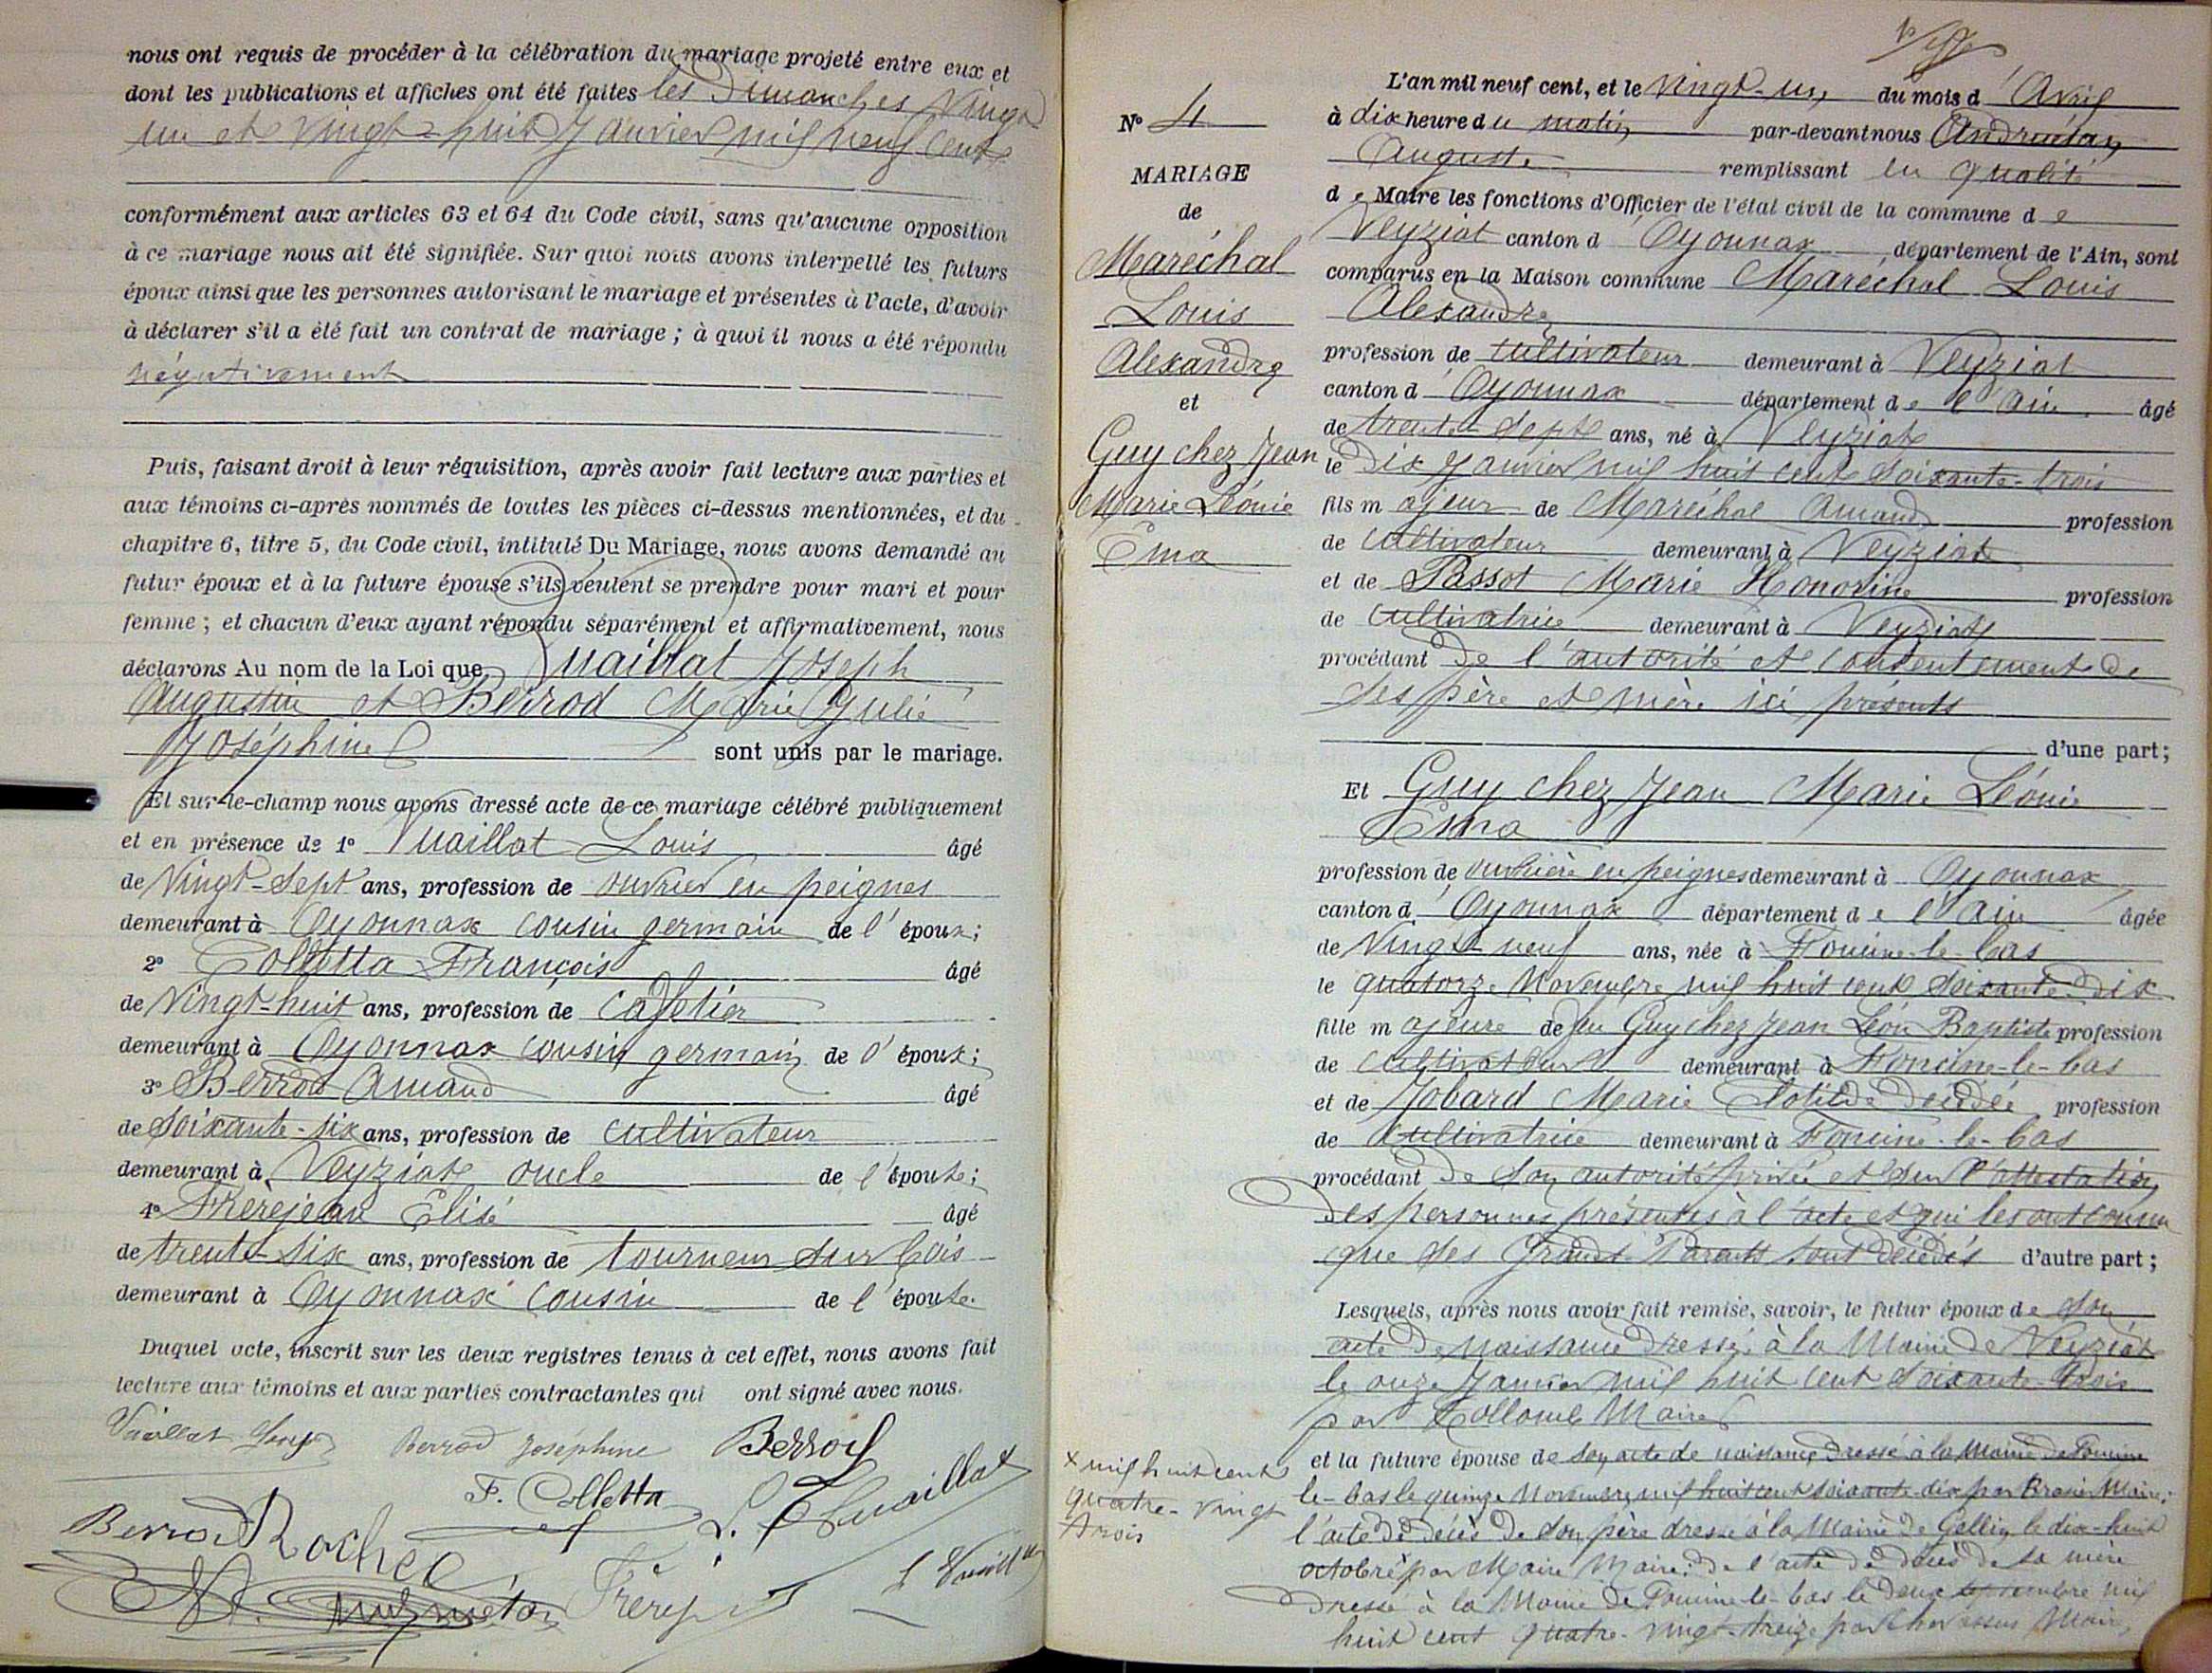 nous ont requis de procéder à la célébration du mariage projeté entre eux et
dont les publications et affiches ont été faites les Dimanches Vingt
un et Vingt-huit Janvier mil neuf Cent
conformément aux articles 63 et 64 du Code civil, sans qu'aucune opposition
à ce mariage nous ait été signifiée. Sur quoi nous avons interpellé les futurs
époux ainsi que les personnes autorisant le mariage et présentes à l'acte, d'avoir
à déclarer s'il a été fait un contrat de mariage ; à quoi il nous a été répondu
négativement
Puis, faisant droit à leur réquisition, après avoir fait lecture aux parties et
aux témoins ci-après nommés de toutes les pièces ci-dessus mentionnées, et du
chapitre 6, titre 5, du Code civil, intitulé Du Mariage, nous avons demandé au
futur époux et à la future épouse s'ils veulent se prendre pour mari et pour
femme ; et chacun d'eux ayant répondu séparément et affirmativement, nous
déclarons Au nom de la Loi que Vuaillat Joseph
Augustin et Berrod Marie Julie
Joséphine sont unis par le mariage.
Et sur-le-champ nous avons dressé acte de ce mariage célébré publiquement
et en présence de 1° Vuaillat Louis âgé
de Vingt-sept ans, profession de ouvrier en peignes
demeurant à Oyonnax cousin germain de l'époux ;
2° Colletta François âgé
de Vingt-huit ans, profession de cafetier
demeurant à Oyonnax cousin germain de l'époux ;
3° Berrod Amand âgé
de soixante-six ans, profession de cultivateur
demeurant à Veyziat oncle de l'épouse ;
4° Frèrejean Elisé âgé
de trente-six ans, profession de tourneur sur bois
demeurant à Oyonnax cousin de l'épouse.
Duquel acte, inscrit sur les deux registres tenus à cet effet, nous avons fait
lecture aux témoins et aux parties contractantes qui ont signé avec nous.
Vuaillat Joseph Berrod Joséphine Berrod
F. Colletta L. Vuaillat
Berrod Rochee
Frèrej L Vuaillat
N° 4
MARIAGE
de
Maréchal
Louis
Alexandre
et
Guy chez Jean
Marie Léonie
Ema
L'an mil neuf cent, et le vingt-un du mois d'Avril
à dix heure du matin par-devant nous Andruétan
Auguste remplissant en qualité
de Maire les fonctions d'Officier de l'état civil de la commune de
Veyziat canton d'Oyonnax département de l'Ain, sont
comparus en la Maison commune Maréchal Louis
Alexandre
profession de cultivateur demeurant à Veyziat
canton d'Oyonnax département de l'Ain âgé
de trente-sept ans, né à Veyziat
le Dix Janvier mil huit cent soixante-trois
fils majeur de Maréchal Amand profession
de cultivateur demeurant à Veyziat
et de Passot Marie Honorine profession
de cultivatrice demeurant à Veyziat
procédant de l'autorité et consentement de
ses père et mère ici présents
d'une part ;
Et Guy chez Jean Marie Léonie
Ema
profession de ouvrière en peignes demeurant à Oyonnax
canton d'Oyonnax département de l'Ain âgée
de Vingt neuf ans, née à Foncine-le-bas
le quatorze Novembre mil huit cent soixante-dix
fille majeure de feu Guy chez Jean Léon Baptiste profession
de cultivateur demeurant à Foncine-le-bas
et de Jobard Marie Clotilde décédée profession
de cultivatrice demeurant à Foncine-le-bas
procédant de son autorité privée et sur l'attestation
des personnes présentes à l'acte et qui les ont connu
que ses Grands Parents sont décédés d'autre part ;
Lesquels, après nous avoir fait remise, savoir, le futur époux de son
acte de Naissance dressé à la Mairie de Veyziat
le onze Janvier mil huit cent soixante-trois
par Maire
et la future épouse de son acte de naissance dressé à la Mairie de Foncine
le-bas le quinze Novembre mil huit cent soixante-dix par Maire ;
l'acte de décès de son père dressé à la Mairie de le dix-huit
octobre x par Maire ; de l'acte de décès de sa mère
Dressé à la Mairie de Foncine-le-bas le Deux septembre mil
huit cent quatre-vingt-treize par Maire,
x mil huit cent
quatre-vingt
trois